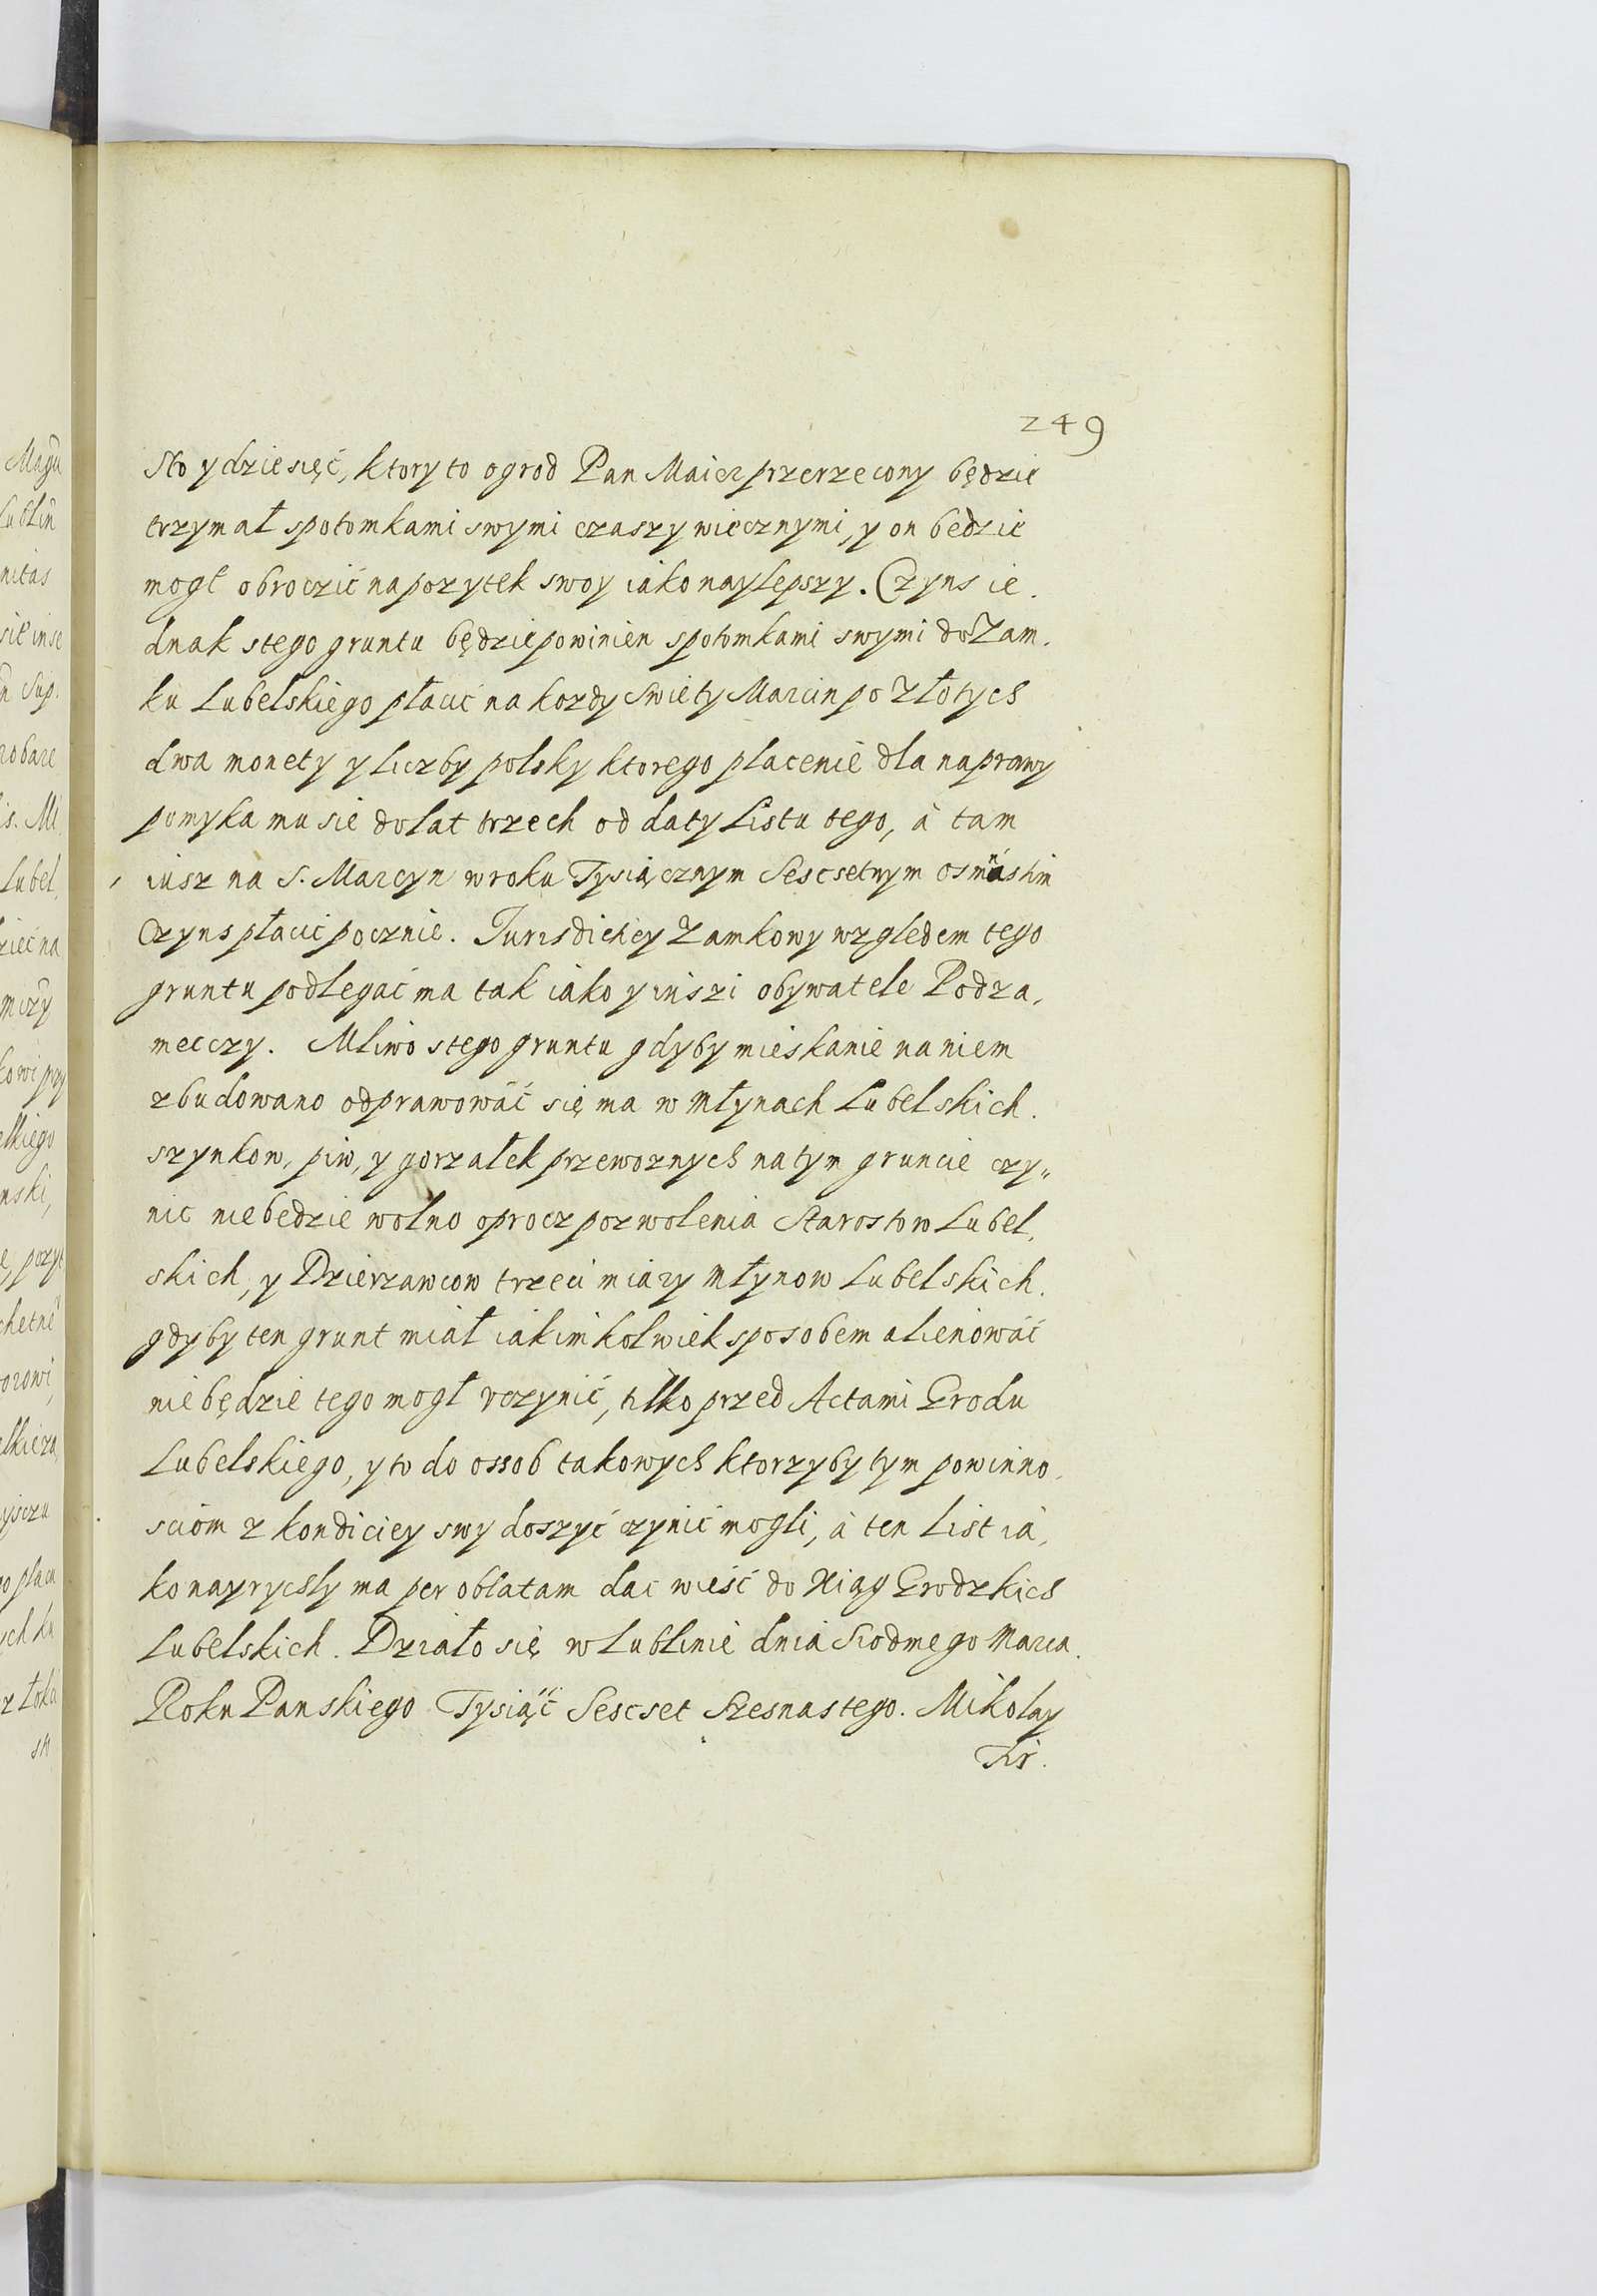 249
Sto y dziesięć, ktory to ogrod Pan Maier przerzecony będzie
trzymał spotomkami swymi czaszy wiecznymi, y on bedzie
mogł obroczić na pozytek swoy iako naylepszy. Czyns ie.
dnak stego gruntu będzie powinien spotomkami swymi do Zam.
ku Lubelskiego płacić na kozdy Swiety Marcin po Złotych
dwa monety y liczby polsky ktorego placenie dla naprawy
pomyka mu sie do lat trzech od daty Listu tego, à tam
iusz na S. Marcyn w roku Tysiącznym Sescsetnym osmnastim
Czyns płacić pocznie. Jurisdickcy Zamkowy wzgledem tego
gruntu podlegać ma tak iako y inszi obywatele Podza,
mecczy. Mliwo stego gruntu gdyby mieskanie na niem
zbudowano odprawować się ma w Młynach Lubelskich.
szynkow, piw, y gorzałek przewoznych na tym gruncie czy„
nic nie bedzie wolno oprocz pozwolenia Starostow Lubel,
skich, y Dzierzawcow trzeci miary Młynow Lubelskich.
gdyby ten grunt miał iakimkolwiek sposobem alienować
nie będzie tego mogł vczynić, tilko przed Actami Grodu
Lubelskiego, y to do ossob takowych ktorzyby tym powinno,
sciom z kondiciey swy doszyć czynić mogli, à ten List ia,
ko nayrychly ma per oblatam dac wieść do Xiąg Grodzkich
Lubelskich. Działo się w Lublinie dnia Siodmego Marca.
Roku Panskiego Tysiąć Sescset Szesnastego. Mikolay